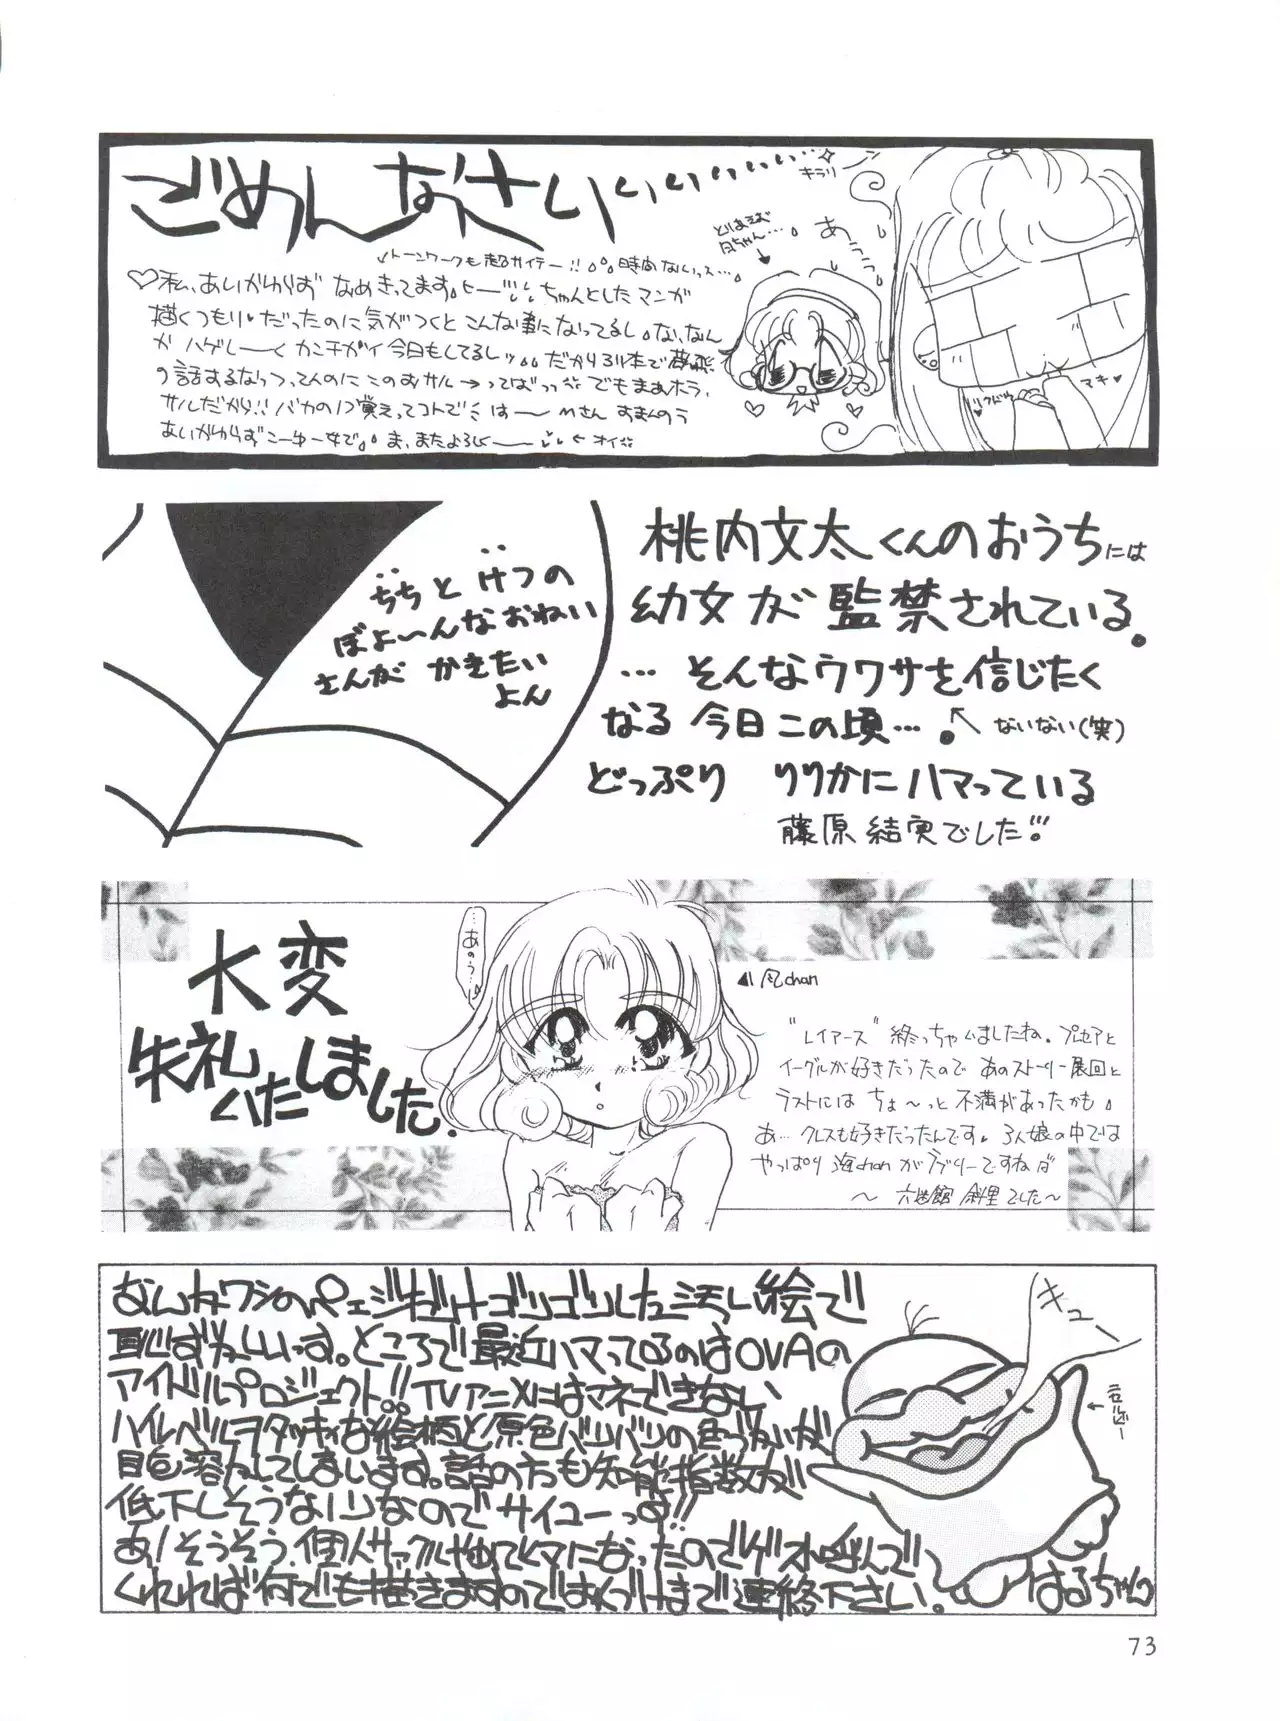 ごめんなさいぃぃ
キラリ
とりあえず
白ちゃん…
あ
ラララ
↙トーンワークも超サイテー!!。時間ないっス…
♡私、あいかわらず なめきってます。ヒー ちゃんとしたマンガ
描くつもりだったのに気がつくと こんな事になってるし。な、なん
か ハゲしーく カンチガイ今日もしてるしッ
の話するなっつってんのに このおサル→ってばっっ でもまぁホラ、
サルだから!! バカの1つ覚えってコトで は── Mさん すまんのう
あいかわらずこーゆー女で。ま、またよろしく── ←オイ
マキ♥
ちちと けつの
ぼよ〜んなおねい
さんが かきたい
よん
桃内文太くんのおうちには
幼女が監禁されている。
… そんなウワサを信じたく
なる 今日この頃…。
↖ないない(笑)
どっぷり りりかにハマっている
藤原 結実でした!!
大変
失礼
いたしました.
…あのう…
◢風chan
"レイアース" 終っちゃいましたね。プレセアと
イーグルが好きだったので あのストーリー展開と
ラストには ちょ〜っと 不満があったかも。
あ… クレスも好きだったんです。3人娘の中では
やっぱり 海chanがラブリーですねぇ
〜 斜里でした〜
なんかワシのページだけゴリゴリした汚い絵で
恥じずかしいっす。ところで最近ハマってるのはOVAの
アイドルプロジェクト!! TVアニメにはマネできない
ハイレベルヲタッキィな絵柄と原色バリバリの色づかいが
目を溶かしてしまいます。話の方も知能指数が
低下しそうなノリなのでサイコーっす!!
あ!そうそう、個人サークルやめてヒマになったのでゲストに呼んで
くれれば何でも描きますのではるづけまで連絡下さい。
キュー
はるちゃん
73